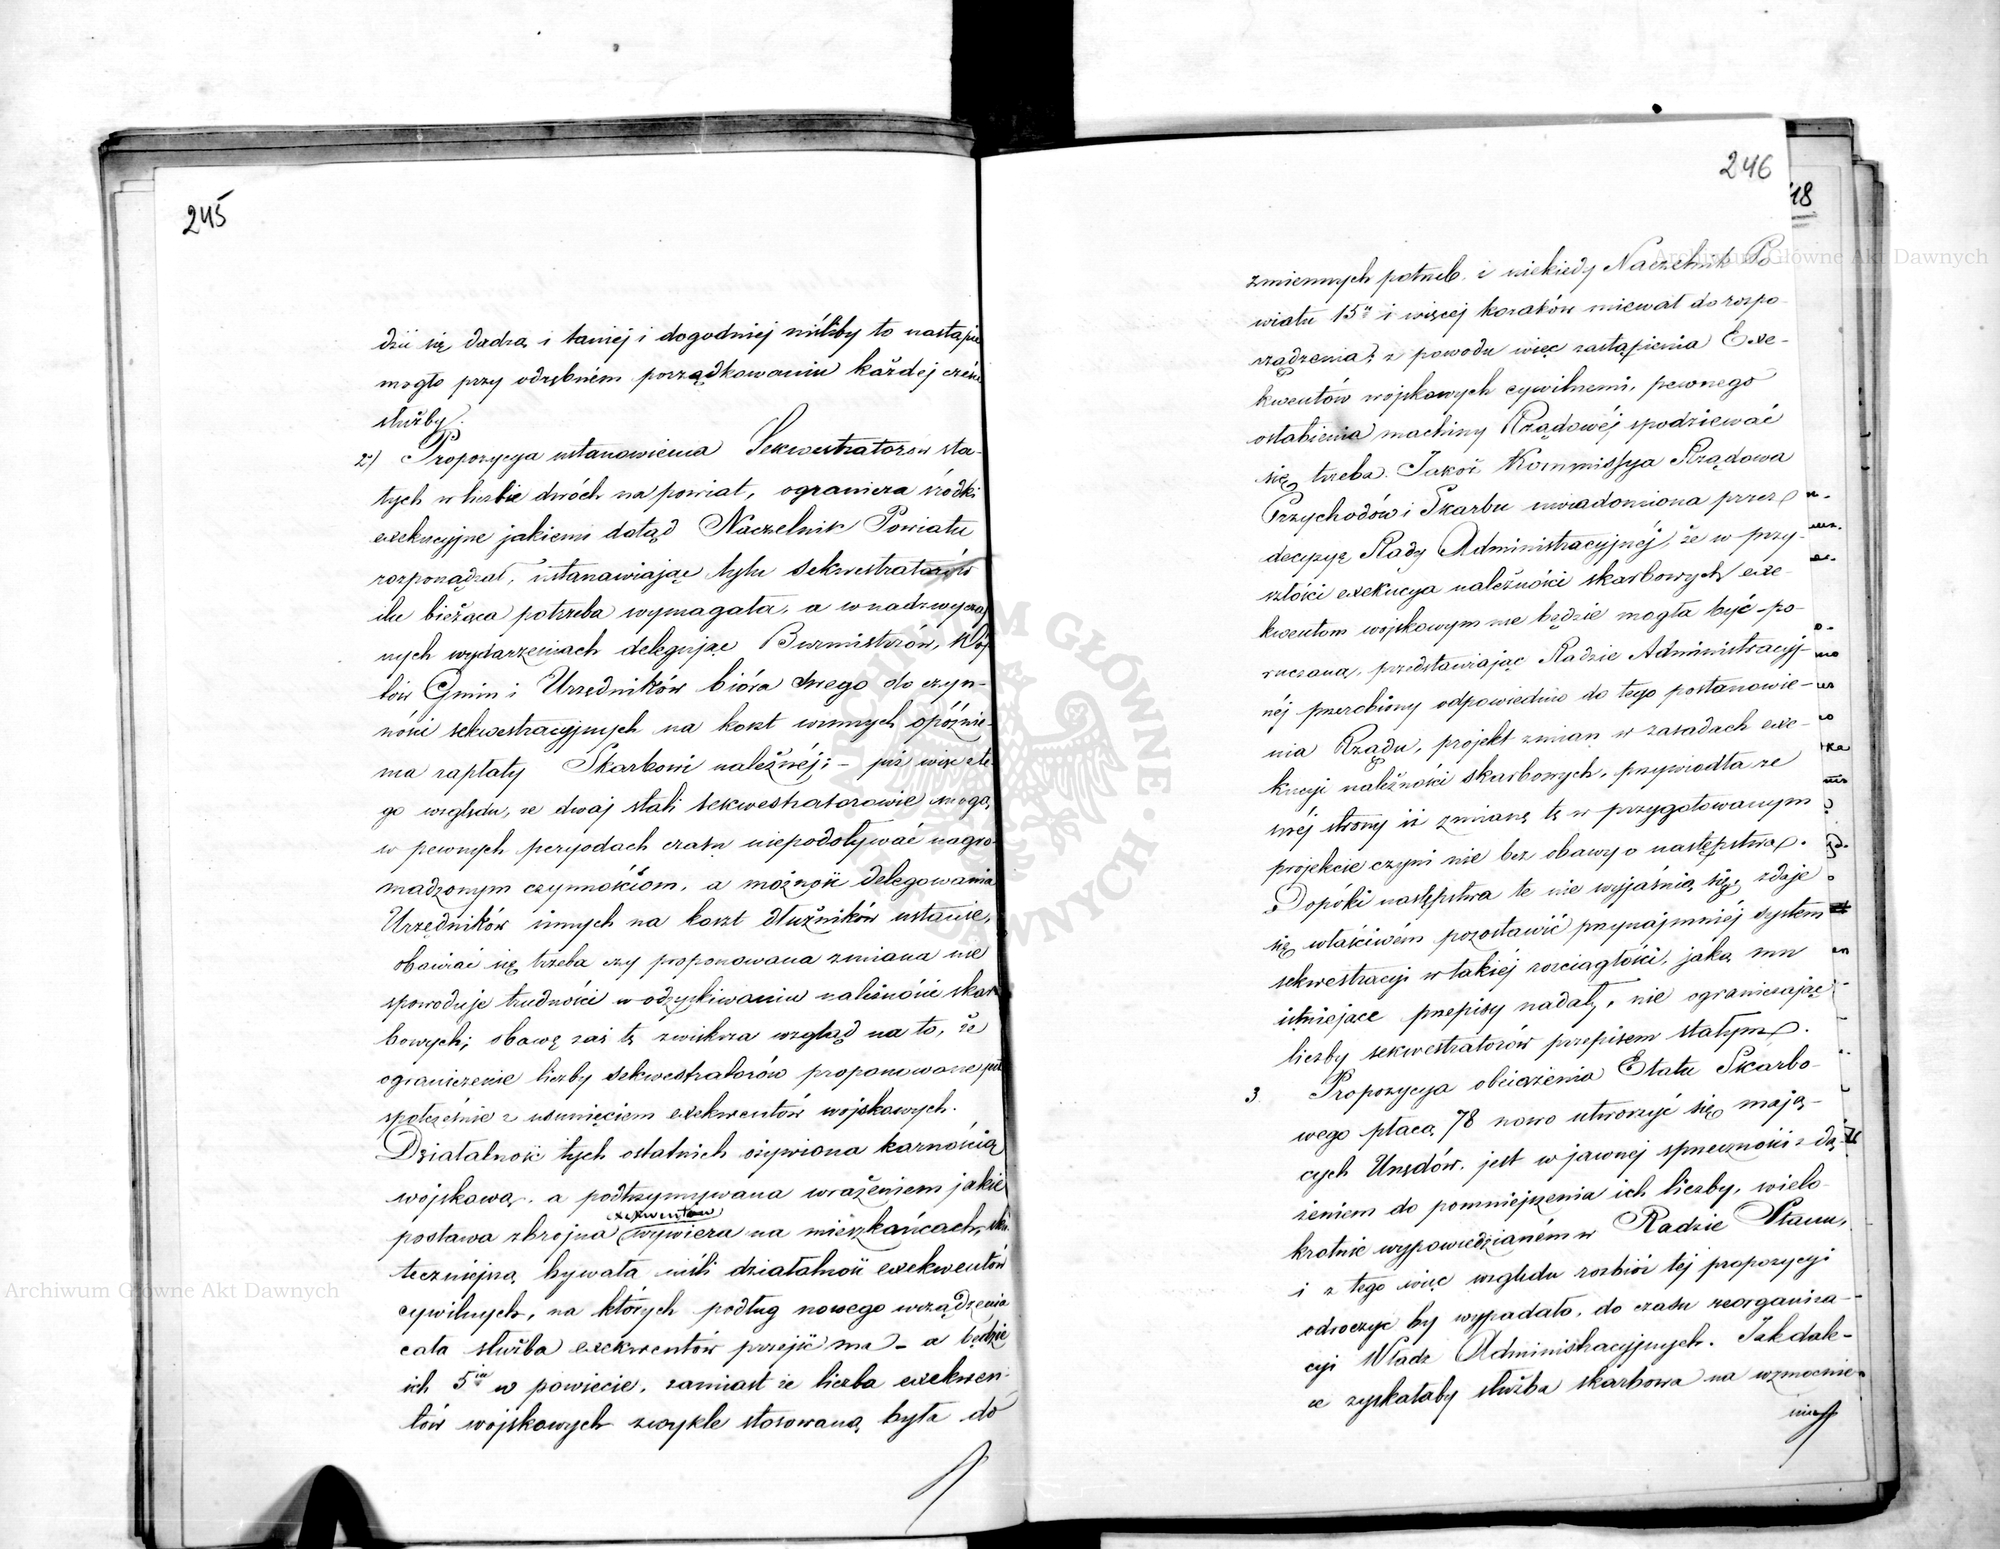 245
dzić się dadzą i taniej i dogodniej niźliby to nastąpić
mogło przy odrębném porządkowaniu każdéj części
służby.
2) Propozycya ustanowienia Sekwestratorów sta-
łych w liczbie dwóch na powiat, ogranicza środki
exekucyjne jakiemi dotąd Naczelnik Powiatu
rozporządzał, ustanawiając tylu sekwestratorów
ilu bieżąca potrzeba wymagała, a w nadzwyczaj
nych wydarzeniach delegując Burmistrzów, Wój
tów Gmin i Urzędników bióra swego do czyn-
ności sekwestracyjnych na koszt winnych opóźnie-
nia zapłaty Skarbowi należnéj; – już więc z te
go względu, że dwaj stali sekwestratorowie mogą
w pewnych peryodach czasu niepodoływać nagro
madzonym czynnościom, a możność delegowania
Urzędników innych na koszt dłużników ustanie,
obawiać się trzeba czy proponowana zmiana nie
spowoduje trudności w odzyskiwaniu należności skar
bowych; obawę zaś tę zwiększa wzgląd na to, że
ograniczenie liczby sekwestratorów proponowane jest
społcześnie z usunięciem exekwentów wojskowych.
Działalność tych ostatnich ożywiona karnością
wojskową, a podtrzymywana wrażeniem jakie
exekwentów
postawa zbrojna wywiera na mieszkańcach, sku
teczniejszą bywała niźli działalność exekwentów
cywilnych, na których podług nowego urządzenia
cała służba exekwentów przejść ma – a będzie
ich 5iu w powiecie, zamiast że liczba exekwen-
tów wojskowych zwykle stosowaną była do
246
18
zmiennych potrzeb i niekiedy Naczelnik Po
wiatu 15u i więcej kozaków miewał do rozpo-
rządzenia; z powodu więc zastąpienia Exe-
kwentów wojskowych cywilnemi, pewnego
osłabienia machiny Rządowéj spodziewać
się trzeba. Jakoż Kommissya Rządowa
Przychodów i Skarbu uwiadomiona przez
decyzyę Rady Administracyjnéj, że w przy-
szłości exekucya należności skarbowych exe-
kwentom wojskowym nie będzie mogła być po-
ruczana, przedstawiając Radzie Administracyj
néj przerobiony odpowiednio do tego postanowie-
nia Rządu, projekt zmian w zasadach exe-
kucyi należności skarbowych, przywiodła ze
swéj strony iż zmianę tę w przygotowanym
projekcie czyni nie bez obawy o następstwa.
Dopóki następstwa te nie wyjaśnią się, zdaje
się właściwém pozostawić przynajmniéj system
sekwestracyi w takiéj rozciągłości, jaką mu
istniejące przepisy nadały, nie ograniczając
liczby sekwestratorów przepisem stałym.
3. Propozycya obciążenia Etatu Skarbo-
wego płacą 78 nowo utworzyć się mają-
cych Urzędów, jest w jawnej sprzeczności z dą-
żeniem do pomniejszenia ich liczby, wielo-
krotnie wypowiedzianém w Radzie Stanu,
i z tego więc względu rozbiór tej propozycyi
odroczyć by wypadało, do czasu reorganiza-
cyi Władz Administracyjnych. Jak dale-
ce zyskałaby służba skarbowa na wzmocnie-
niu